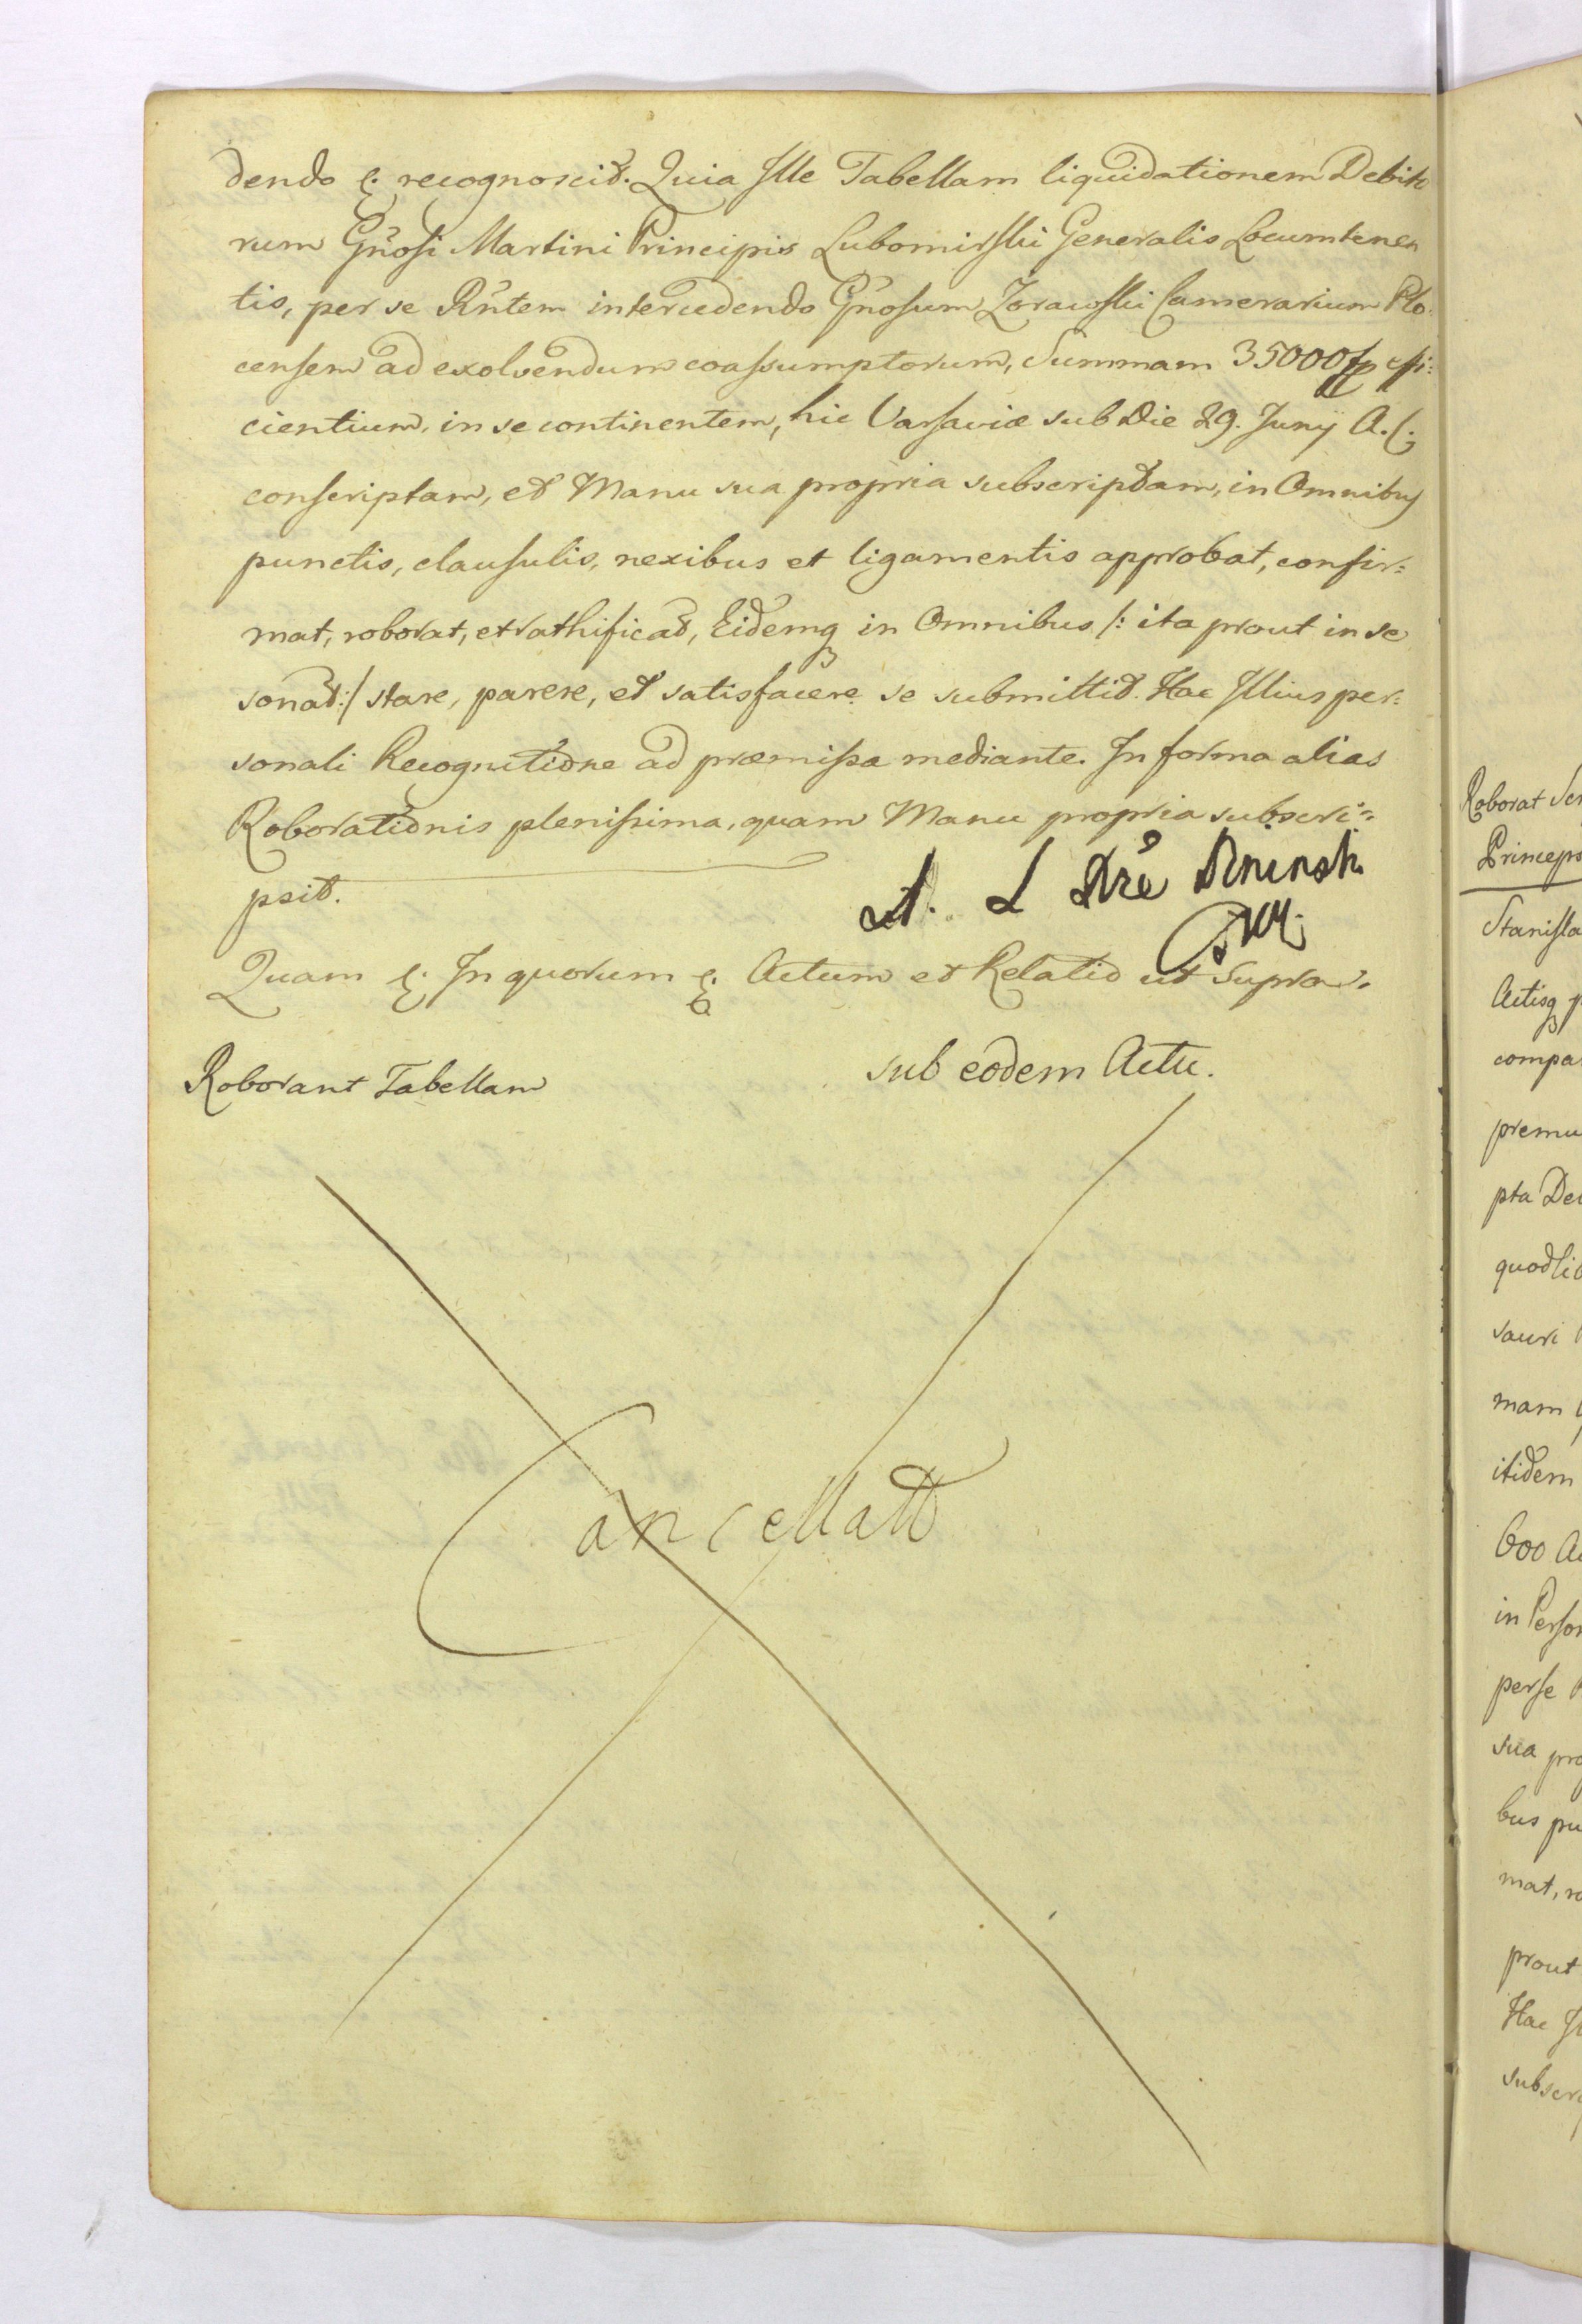 dendo &. recognoscit. Quia Ille Tabellam liquidationem Debito
rum Gnosi Martini Principis Lubomirski Generalis Locumtenen
tis, per se Rntem intercedendo Gnosum Zorawski Camerarium Plo.
censem ad exolvendum coassumptorum, Summam 35000 fp effi:
cientium, in se continentem, hic Varsaviæ sub Die 29. Junij A. C.
conscriptam, et Manu sua propria subscriptam, in Omnibus
punctis, clausulis, nexibus et ligamentis approbat, confir:
mat, roborat, et rathificat, Eidemq in Omnibus /: ita prout in se
sonat :/ stare, parere, et satisfacere se submittit. Hac Illius per:
sonali Recognitione ad præmissa mediante. In forma alias
Roborationis plenissima, quam Manu propria subscri:
psit.
A. L
Quam &. In quorum &. Actum et Relatio ut Supra.
Roborant Tabellam sub eodem Actu.
Cancellatt
Roborat
Princeps
Stanisla
Actisq p
compa
premu
pta De
quodli
sauri
mam
itidem
600 A
in Perso
perse
sua pro
bus pu
mat, ro
prout
Hac Il
subscr